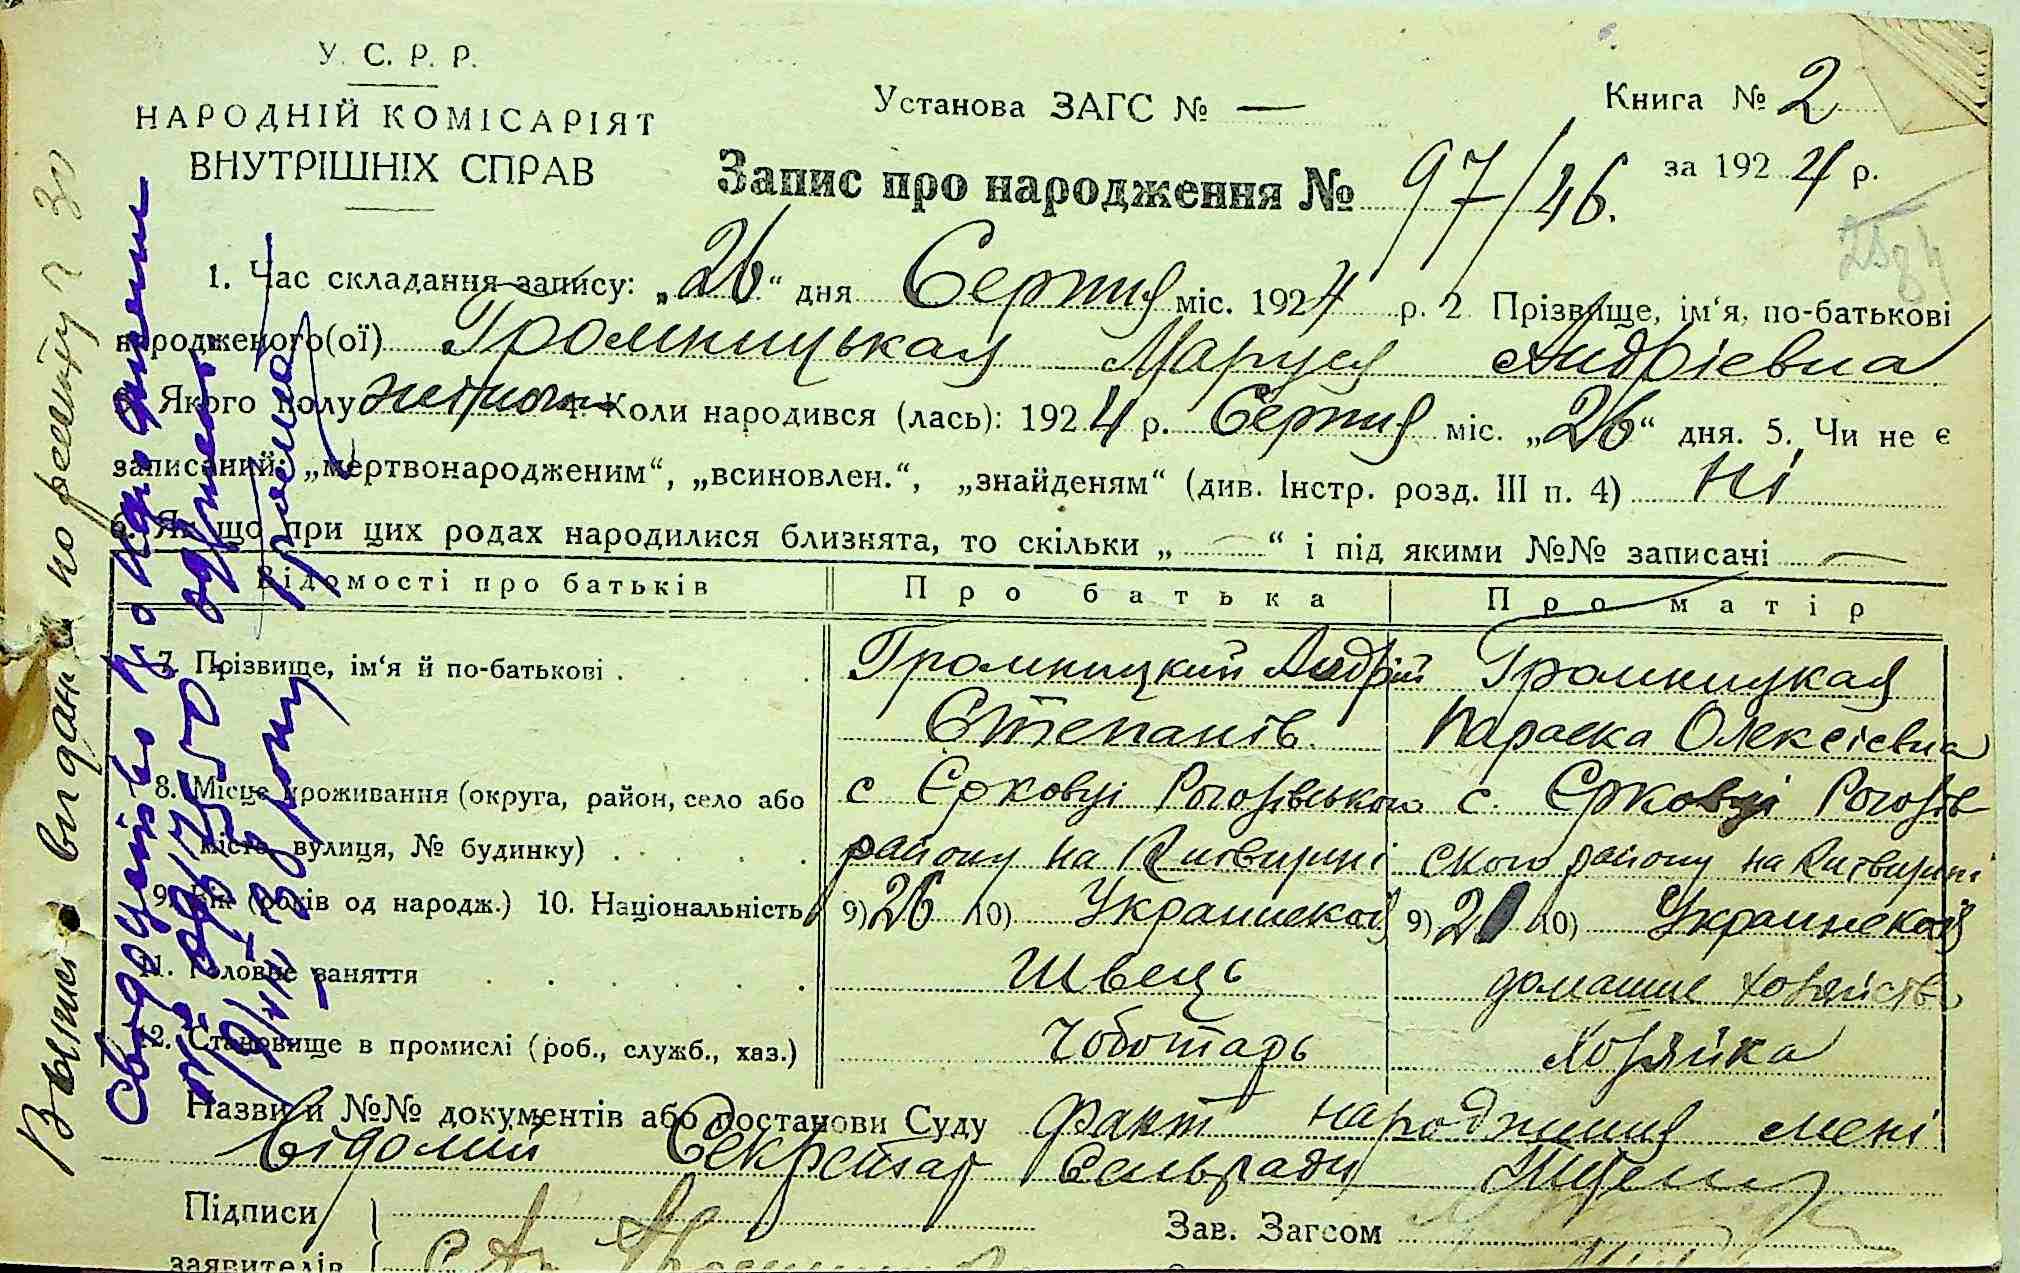 У. С. Р. Р.
НАРОДНІЙ КОМІСАРІЯТ
ВНУТРІШНІХ СПРАВ
Установа ЗАГС № —
Книга № 2
за 1924 р.
Запис про народження № 97/46.
1. Час складання запису: „26“ дня Серпня міс. 1924 р. 2 Прізвище, ім‘я, по-батькові
народженого(ої) Громницькая Маруся Андрієвна
3. Якого полу жіночи 4. Коли народився (лась): 1924 р. Серпня міс. „26“ дня. 5. Чи не є
записаний: „мертвонародженим“, „всиновлен.“, „знайденям“ (див. Інстр. розд. III п. 4) Ні
6. Як що при цих родах народилися близнята, то скільки „—“ і під якими №№ записані —
Відомості про батьків
Про батька
Про матір
7. Прізвище, ім‘я й по-батькові
Громницкий Андрій
Степанів.
Громницкая
Параска Олексієвна
8. Місце проживання (округа, район, село або
місто, вулиця, № будинку)
с Єрковці Рогозівського
району на Київщині
с. Єрковці Рогозів
ского району на Київщині
9. Вік (років од народж.) 10. Національність
9) 26 10) Украинской
9) 21 10) Украинской
11. Головне заняття
Швець
домашне хозяйство
12. Становище в промислі (роб., служб., хаз.)
Чоботарь
Хозяйка
Назви й №№ документів або постанови Суду Факт народження мені
відомий Секретар Сельради
Підписи
заявителів
Зав. Загсом
Выпись видан по реєстру №